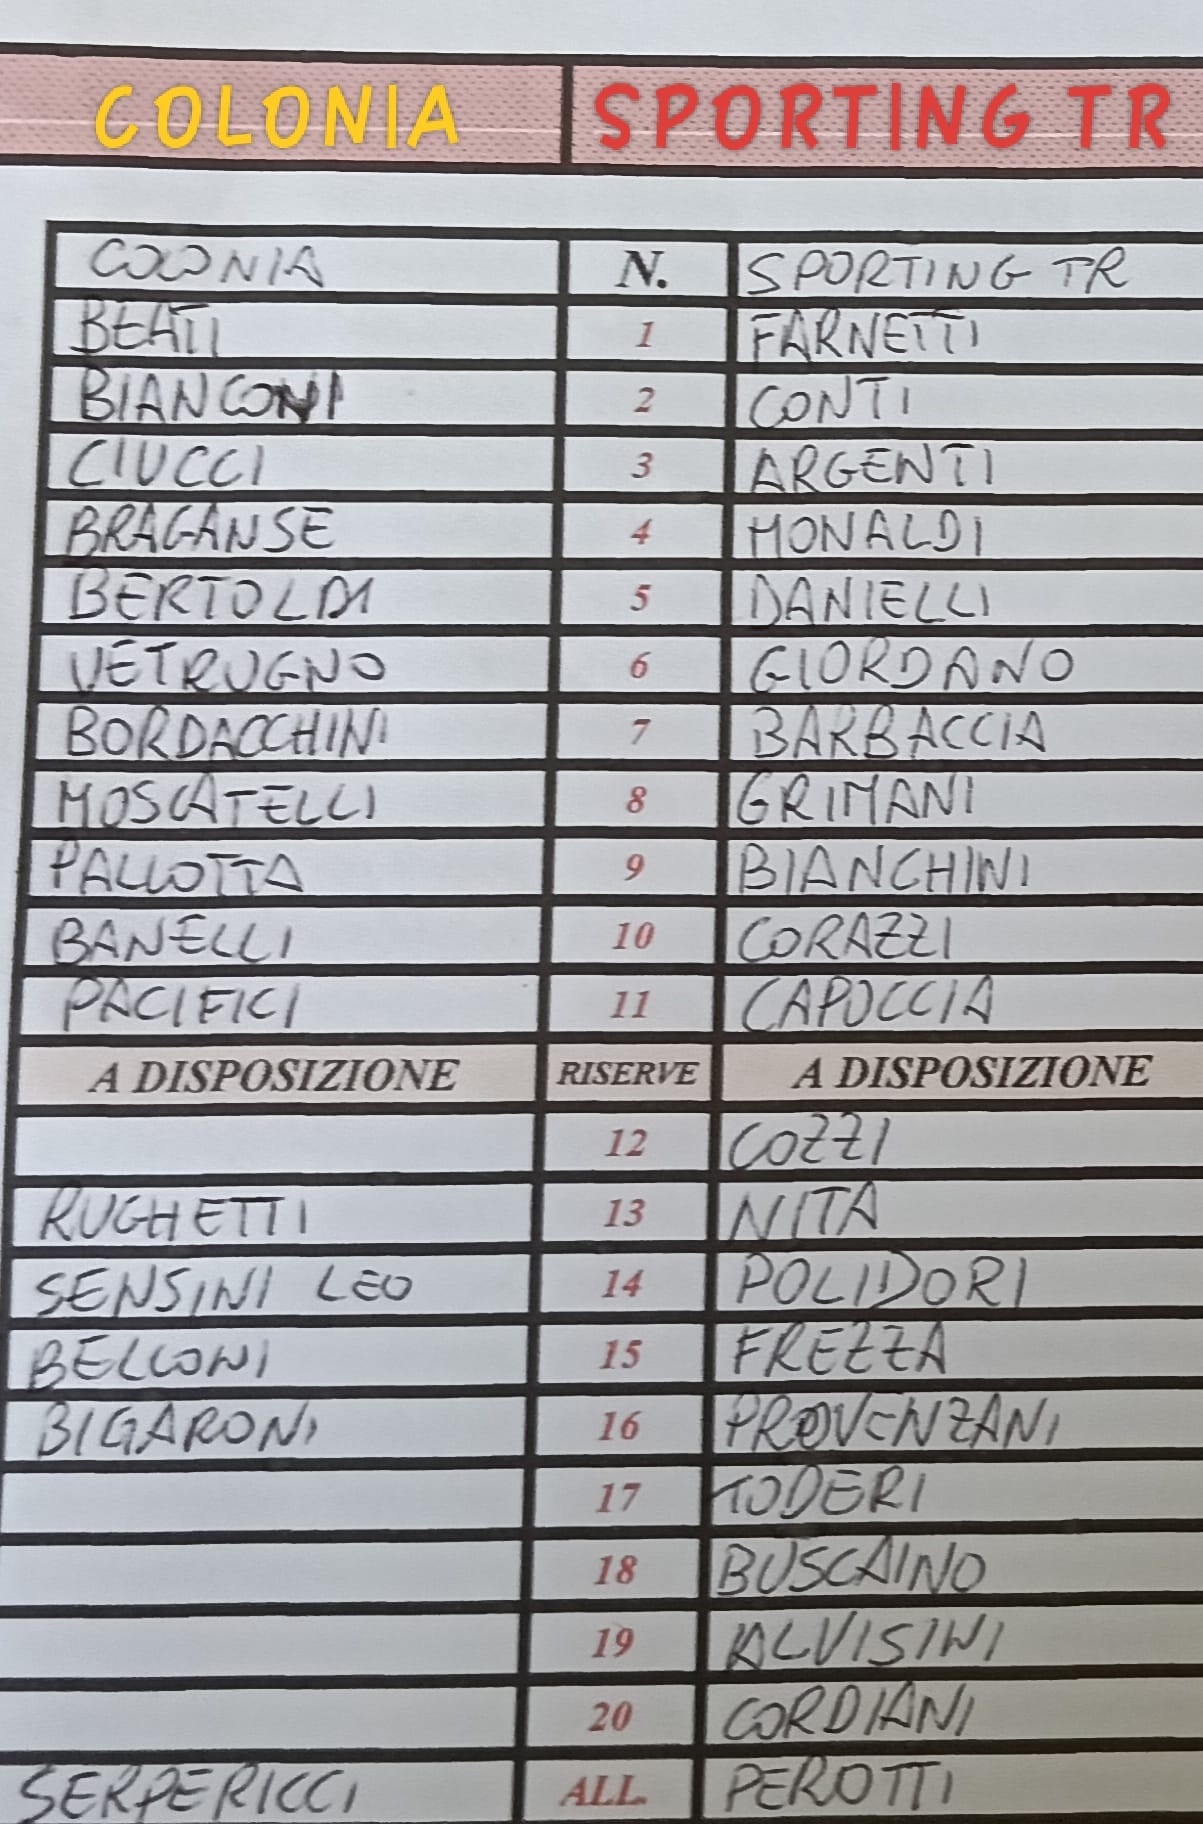 COLONIA SPORTING TR
COLONIA N. SPORTING TR
BEATI 1 FARNETTI
BIANCONI 2 CONTI
CIUCCI 3 ARGENTI
BRAGANSE 4 MONALDI
BERTOLDI 5 DANIELLI
VETRUGNO 6 GIORDANO
BORDACCHINI 7 BARBACCIA
MOSCATELLI 8 GRIMANI
PALLOTTA 9 BIANCHINI
BANELLI 10 CORAZZI
PACIFICI 11 CAPOCCIA
A DISPOSIZIONE RISERVE A DISPOSIZIONE
12 COZZI
RUGHETTI 13 NITA
SENSINI LEO 14 POLIDORI
BELLONI 15 FREZZA
BIGARONI 16 PROVENZANI
17 TODERI
18 BUSCAINO
19 ALVISINI
20 CORDIANI
SERPERICCI ALL. PEROTTI